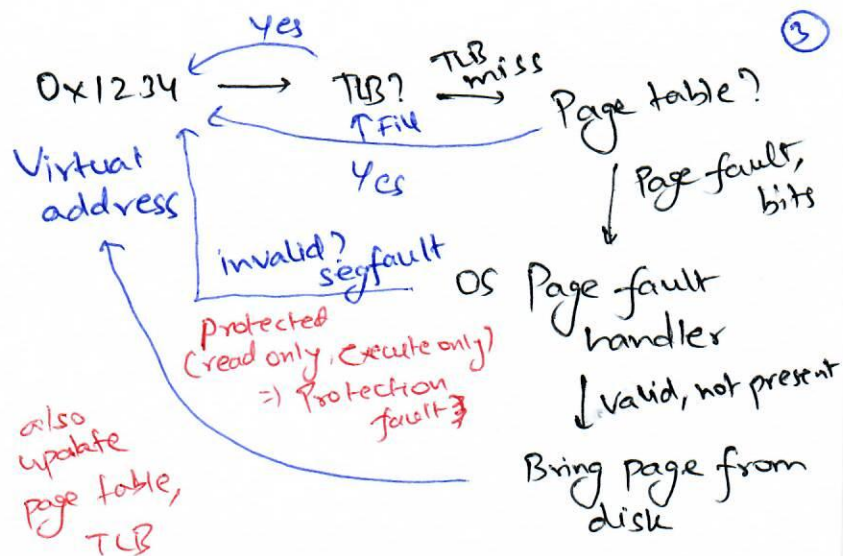 3
Yes
0x1234
TLB?
TLB miss
Page table?
↑ Fill
Yes
Virtual
address
Page fault,
bits
invalid?
segfault
OS Page fault
handler
Protected
(read only, execute only)
=> Protection
fault
valid, not present
Bring page from
disk
also
update
page table,
TLB